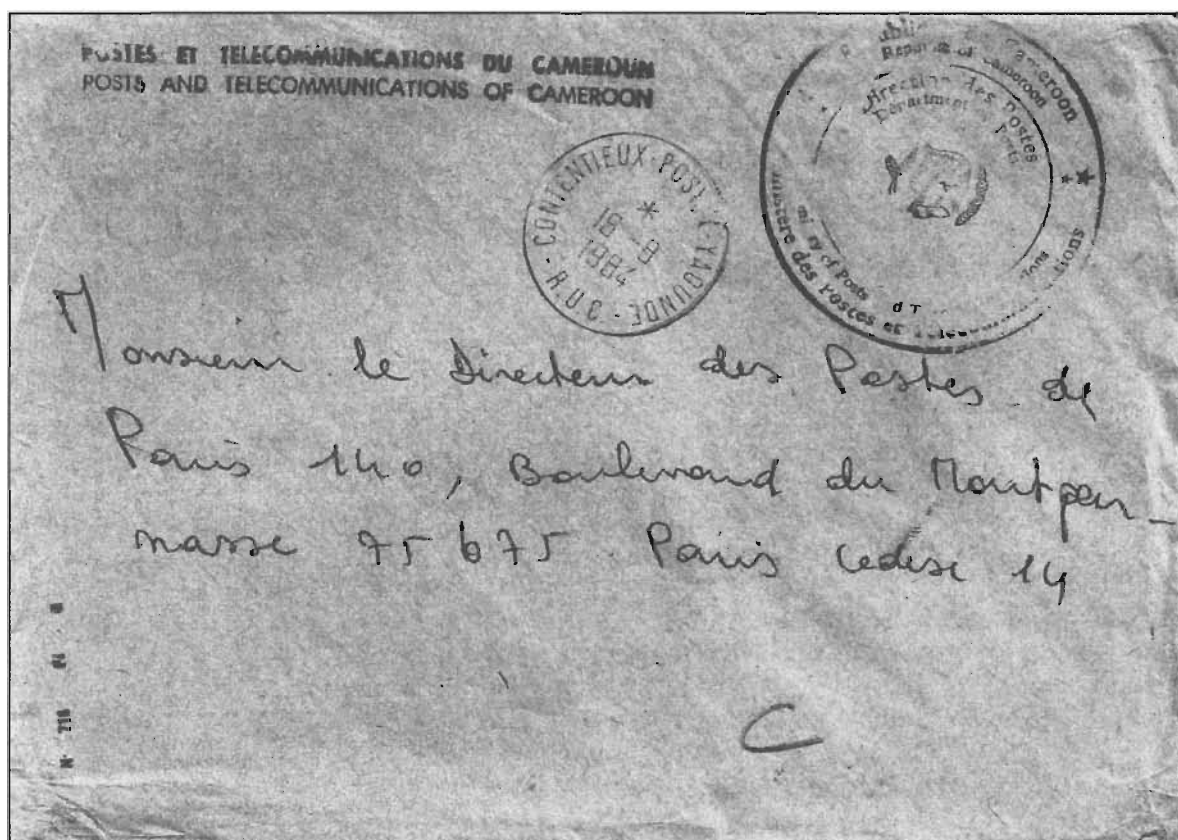 POSTES ET TELECOMMUNICATIONS DU CAMEROUN
POSTS AND TELECOMMUNICATIONS OF CAMEROON
CONTENTIEUX-POST. YAOUNDE - R.U.C -
16 -8
1984
Cameroon
Cameroon
des postes
Department
ry of Posts
des Postes et
Monsieur le Directeur des Postes de
Paris 140, Boulevard du Montpar-
nasse 75675 Paris Cedex 14
C